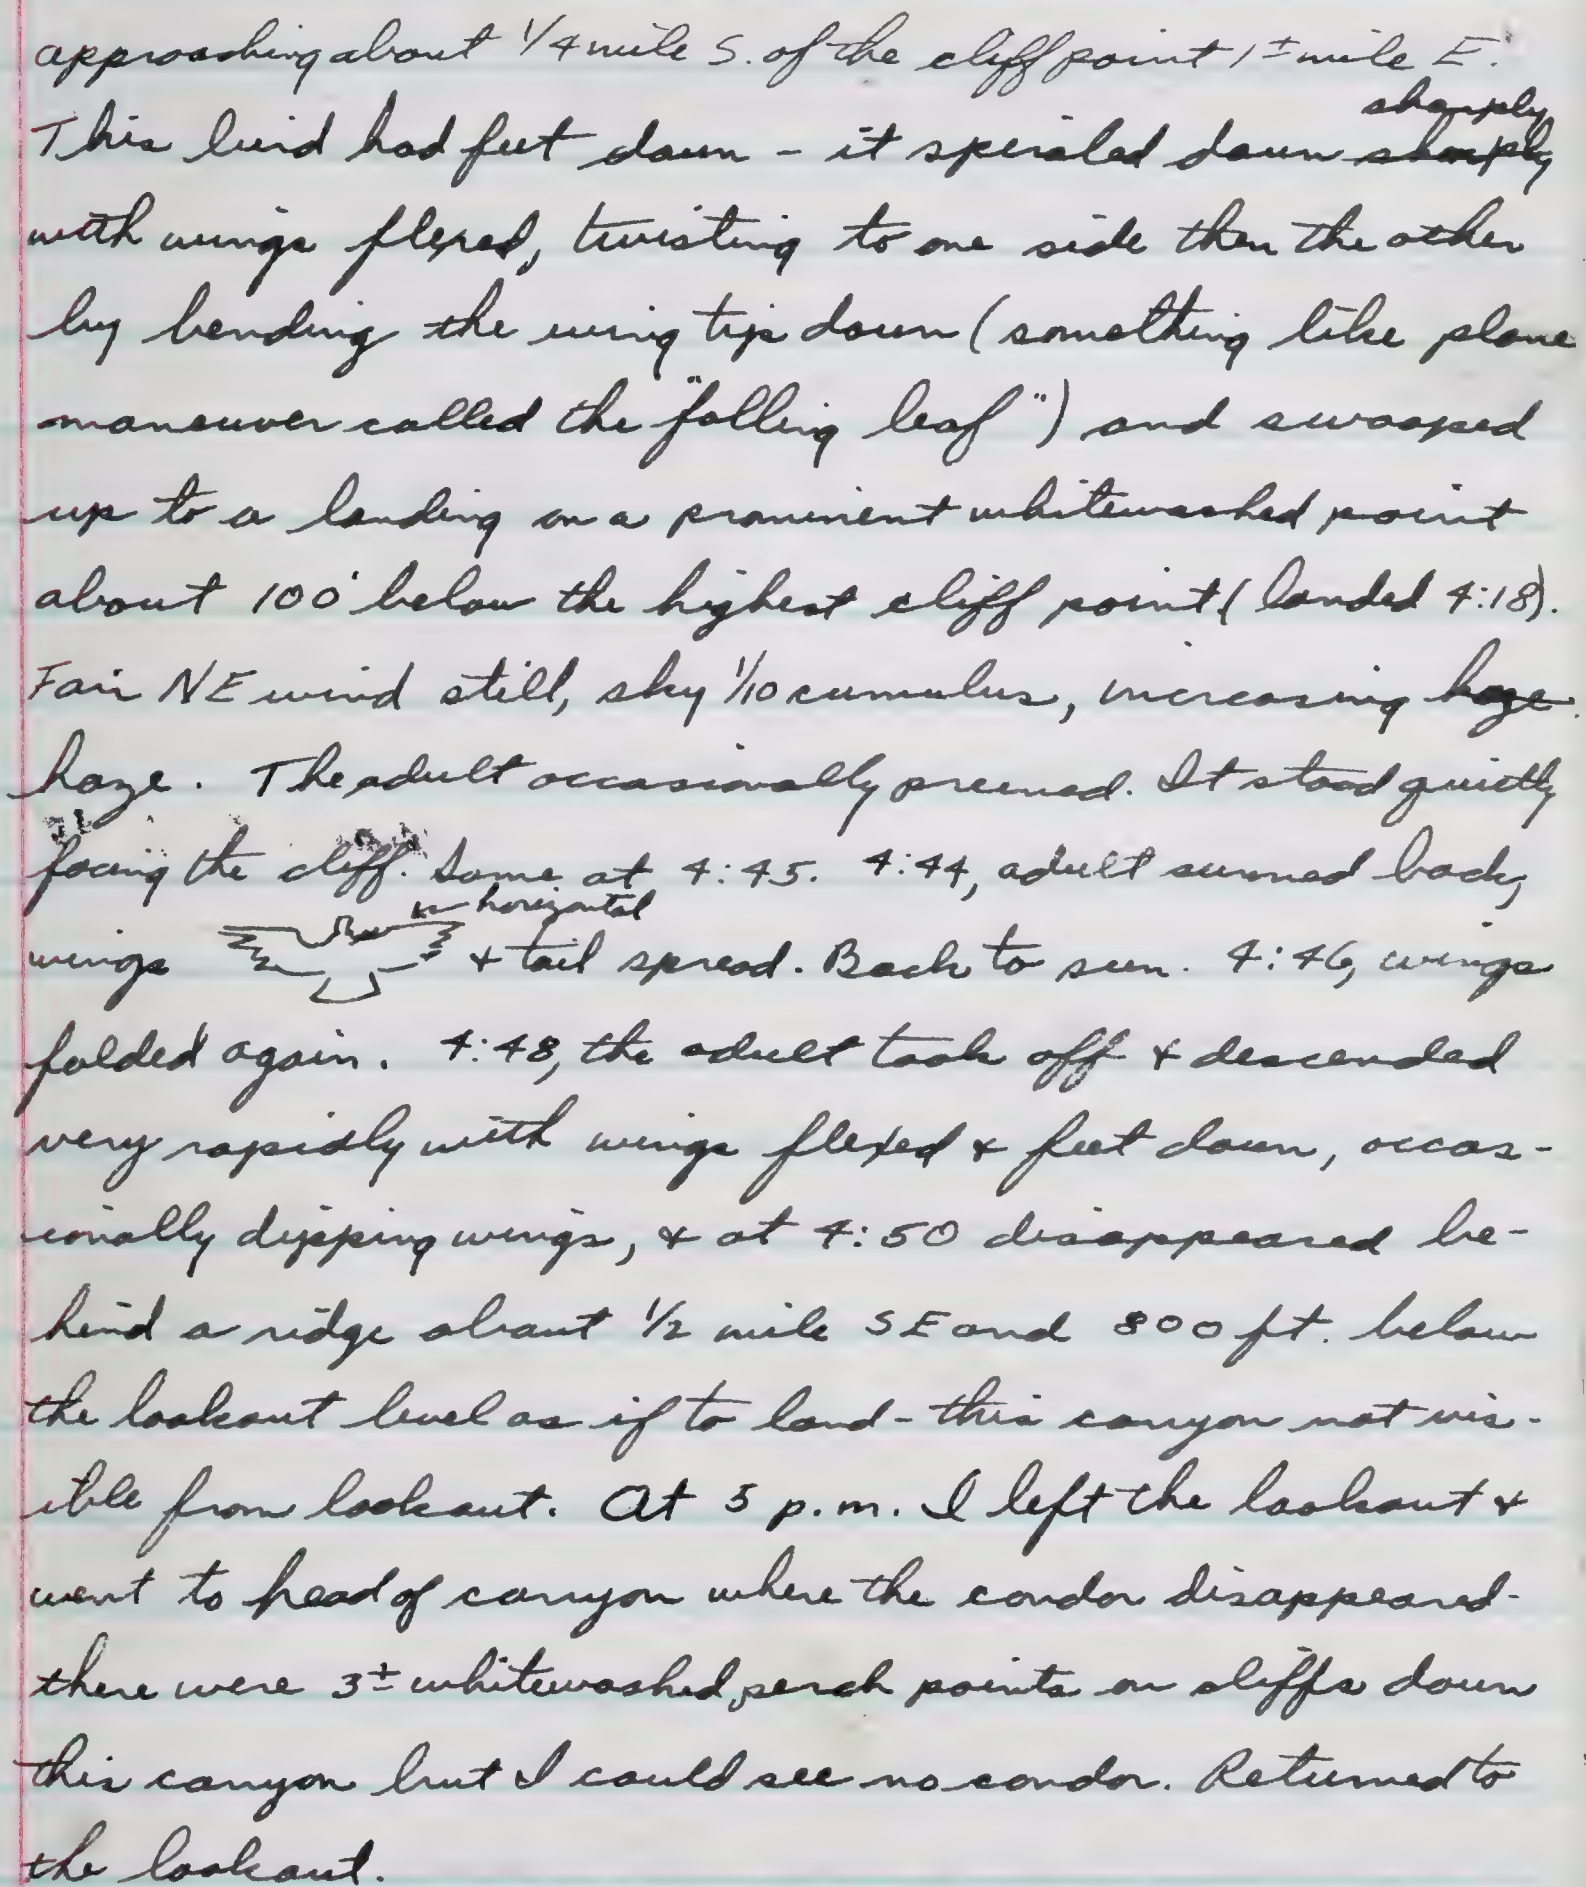 approaching about 1/4 mile S. of the cliff point 1± mile E.
sharply
This bird had feet down - it spiraled down sharply
with wings flexed, twisting to one side then the other
by bending the wing tip down (something like plane
maneuver called the "falling leaf") and swooped
up to a landing on a prominent whitewashed point
about 100' below the highest cliff point (landed 4:18).
Fair NE wind still, sky 1/10 cumulus, increasing haze
haze. The adult occasionally preened. It stood quietly
facing the cliff. Same at 4:45. 4:44, adult sunned back,
horizontal
wings & tail spread. Back to sun. 4:46, wings
folded again. 4:48, the adult took off & descended
very rapidly with wings flexed & feet down, occas-
ionally dipping wings, & at 4:50 disappeared be-
hind a ridge about 1/2 mile SE and 800 ft. below
the lookout level as if to land - this canyon not vis-
ible from lookout. At 5 p.m. I left the lookout &
went to head of canyon where the condor disappeared -
there were 3± whitewashed perch points on cliffs down
this canyon but I could see no condor. Returned to
the lookout.